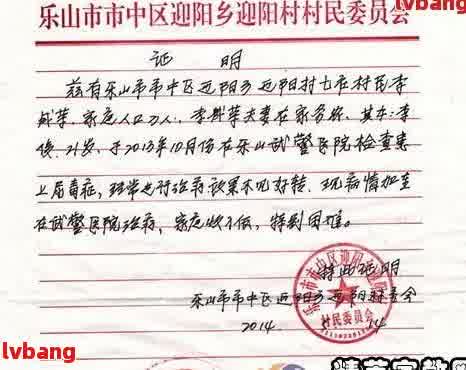 lvbang
乐山市市中区迎阳乡迎阳村村民委员会
证 明
兹有乐山市市中区迎阳乡迎阳村七社村民李
家庭人口 人,李 夫妻在家务农,其子:李
俊,21岁,于2013年10月份在乐山武警医院检查患
上尿毒症,经常 对治病效果不见好转,现病情加重
在武警医院治疗,家庭收入低,特别困难。
特此证明
乐山市市中区迎阳乡迎阳村委会
2014 14
乐山市市中区迎阳乡迎阳村
村民委员会
lvbang